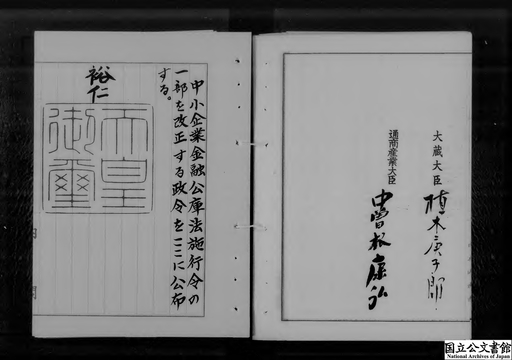 大蔵大臣 植木庚子郎
通商産業大臣 中曽根康弘
中小企業金融公庫法施行令の
一部を改正する政令をここに公布
する。
裕仁
天皇
御璽
国立公文書館
National Archives of Japan